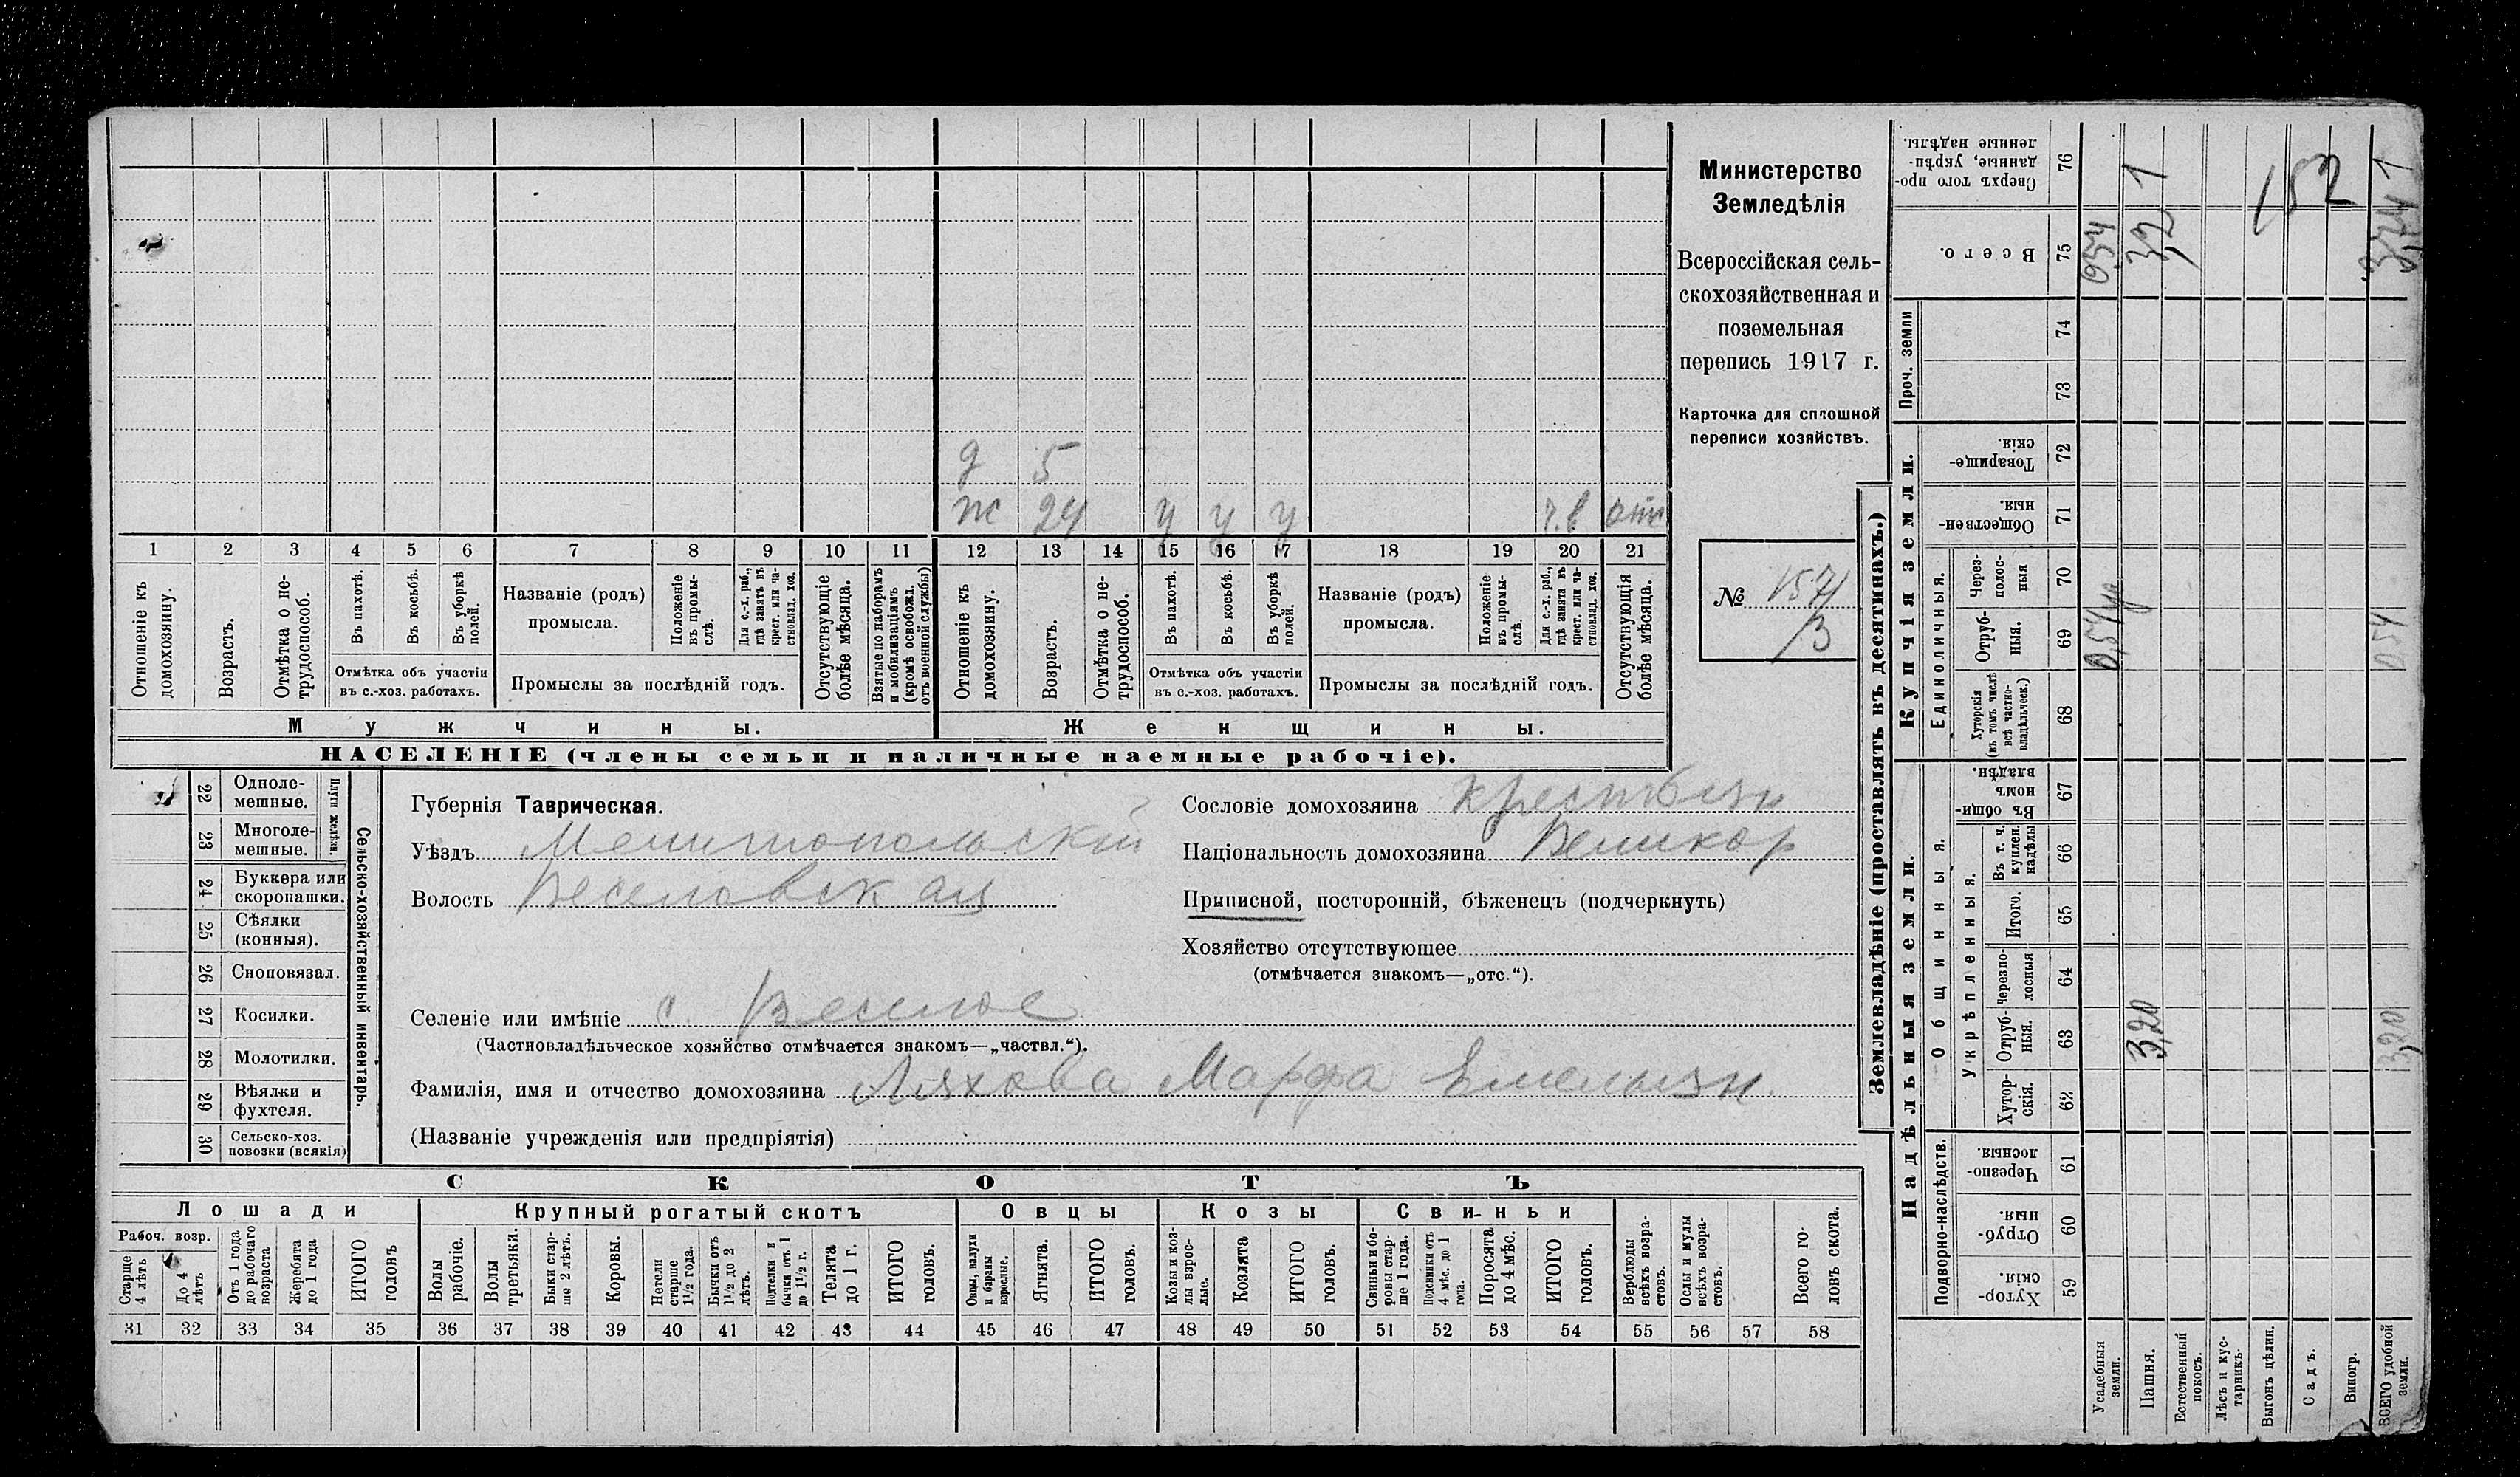 Министерство
Земледѣлія
Всероссійская сель-
скохозяйственная и
поземельная
перепись 1917 г.
Карточка для сплошной
переписи хозяйствъ.
№ 1571
/3
д 5
ж 24 у у у ч.в отс
1 2 3 4 5 6 7 8 9 10 11 12 13 14 15 16 17 18 19 20 21
Отношеніе къ домохозяину.
Возрастъ.
Отмѣтка о не-трудоспособ.
Въ пахотѣ.
Въ косьбѣ.
Въ уборкѣ полей.
Отмѣтка объ участіи
въ с.-хоз. работахъ.
Названіе (родъ)
промысла.
Положеніе въ промы-слѣ.
Для с.-х. раб., гдѣ занятъ въ крест. или ча-стновлад. хоз.
Промыслы за послѣдній годъ.
Отсутствующіе болѣе мѣсяца.
Взятые по наборамъ и мобилизаціямъ (кромѣ освобожд. отъ военной службы)
Отношеніе къ домохозяину.
Возрастъ.
Отмѣтка о не-трудоспособ.
Въ пахотѣ.
Въ косьбѣ.
Въ уборкѣ полей.
Отмѣтка объ участіи
въ с.-хоз. работахъ.
Названіе (родъ)
промысла.
Положеніе въ промы-слѣ.
Для с.-х. раб., гдѣ занята въ крест. или ча-стновлад. хоз.
Промыслы за послѣдній годъ.
Отсутствующія болѣе мѣсяца.
Мужчины.
Женщины.
НАСЕЛЕНІЕ (члены семьи и наличные наемные рабочіе).
22 Одноле-мешные.
23 Многоле-мешные.
Плуги желѣзн.
24 Буккера или скоропашки.
25 Сѣялки (конныя).
26 Сноповязал.
27 Косилки.
28 Молотилки.
29 Вѣялки и фухтеля.
30 Сельско-хоз. повозки (всякія)
Сельско-хозяйственный инвентарь.
Губернія Таврическая.
Уѣздъ Мелитопольскій
Волость Веселовская
Сословіе домохозяина крестьян
Національность домохозяина Великор
Приписной, посторонній, бѣженецъ (подчеркнуть)
Хозяйство отсутствующее
(отмѣчается знакомъ—„отс.“).
Селеніе или имѣніе с. Веселое
(Частновладѣльческое хозяйство отмѣчается знакомъ—„частвл.“).
Фамилія, имя и отчество домохозяина Ляхова Марфа Емельян.
(Названіе учрежденія или предпріятія)
СКОТЪ
Лошади
Крупный рогатый скотъ
Овцы
Козы
Свиньи
Рабоч. возр.
Старше 4 лѣтъ
До 4 лѣтъ
Отъ 1 года до рабочаго возраста
Жеребята до 1 года
ИТОГО головъ
Волы рабочіе.
Волы третьяки.
Быки стар-ше 2 лѣтъ.
Коровы.
Нетели старше 1½ года.
Бычки отъ 1½ до 2 лѣтъ.
Подтелки и бычки отъ 1 до 1½ г.
Телята до 1 г.
ИТОГО головъ.
Овцы, валухи и бараны взрослые.
Ягнята.
ИТОГО головъ.
Козы и коз-лы взрос-лые.
Козлята
ИТОГО головъ.
Свиньи и бо-ровы стар-ше 1 года.
Подсвинки отъ 4 мѣс. до 1 года.
Поросята до 4 мѣс.
ИТОГО головъ.
Верблюды всѣхъ возра-стовъ.
Ослы и мулы всѣхъ возра-стовъ.
Всего го-ловъ скота.
31 32 33 34 35 36 37 38 39 40 41 42 43 44 45 46 47 48 49 50 51 52 53 54 55 56 57 58
Землевладѣніе (проставлять въ десятинахъ.)
Надѣльныя земли.
Купчія земли.
Проч. земли
Подворно-наслѣдств.
Общинныя.
Укрѣпленныя.
Единоличныя.
59 Хутор-скія.
60 Отруб-ныя.
61 Черезпо-лосныя.
62 Хутор-скія.
63 Отруб-ныя.
64 Черезпо-лосныя
65 Итого.
66 Въ т. ч. куплен. надѣлы
67 Въ общи-номъ владѣн.
68 Хуторскія (въ томъ числѣ всѣ частно-владѣльческ.)
69 Отруб-ныя.
70 Через-полос-ныя
71 Обществен-ныя.
72 Товарище-скія.
73
74
75 Всего.
76 Сверхъ того про-данные, укрѣп-ленные надѣлы.
Усадебныя земли. 0,54
Пашня. 3,20 3,2 1
Естественный покосъ.
Лѣсъ и кус-тарникъ.
Выгонъ цѣлин.
Садъ.
Виногр.
ВСЕГО удобной земли. 3,20 0,54 3,74 1
152